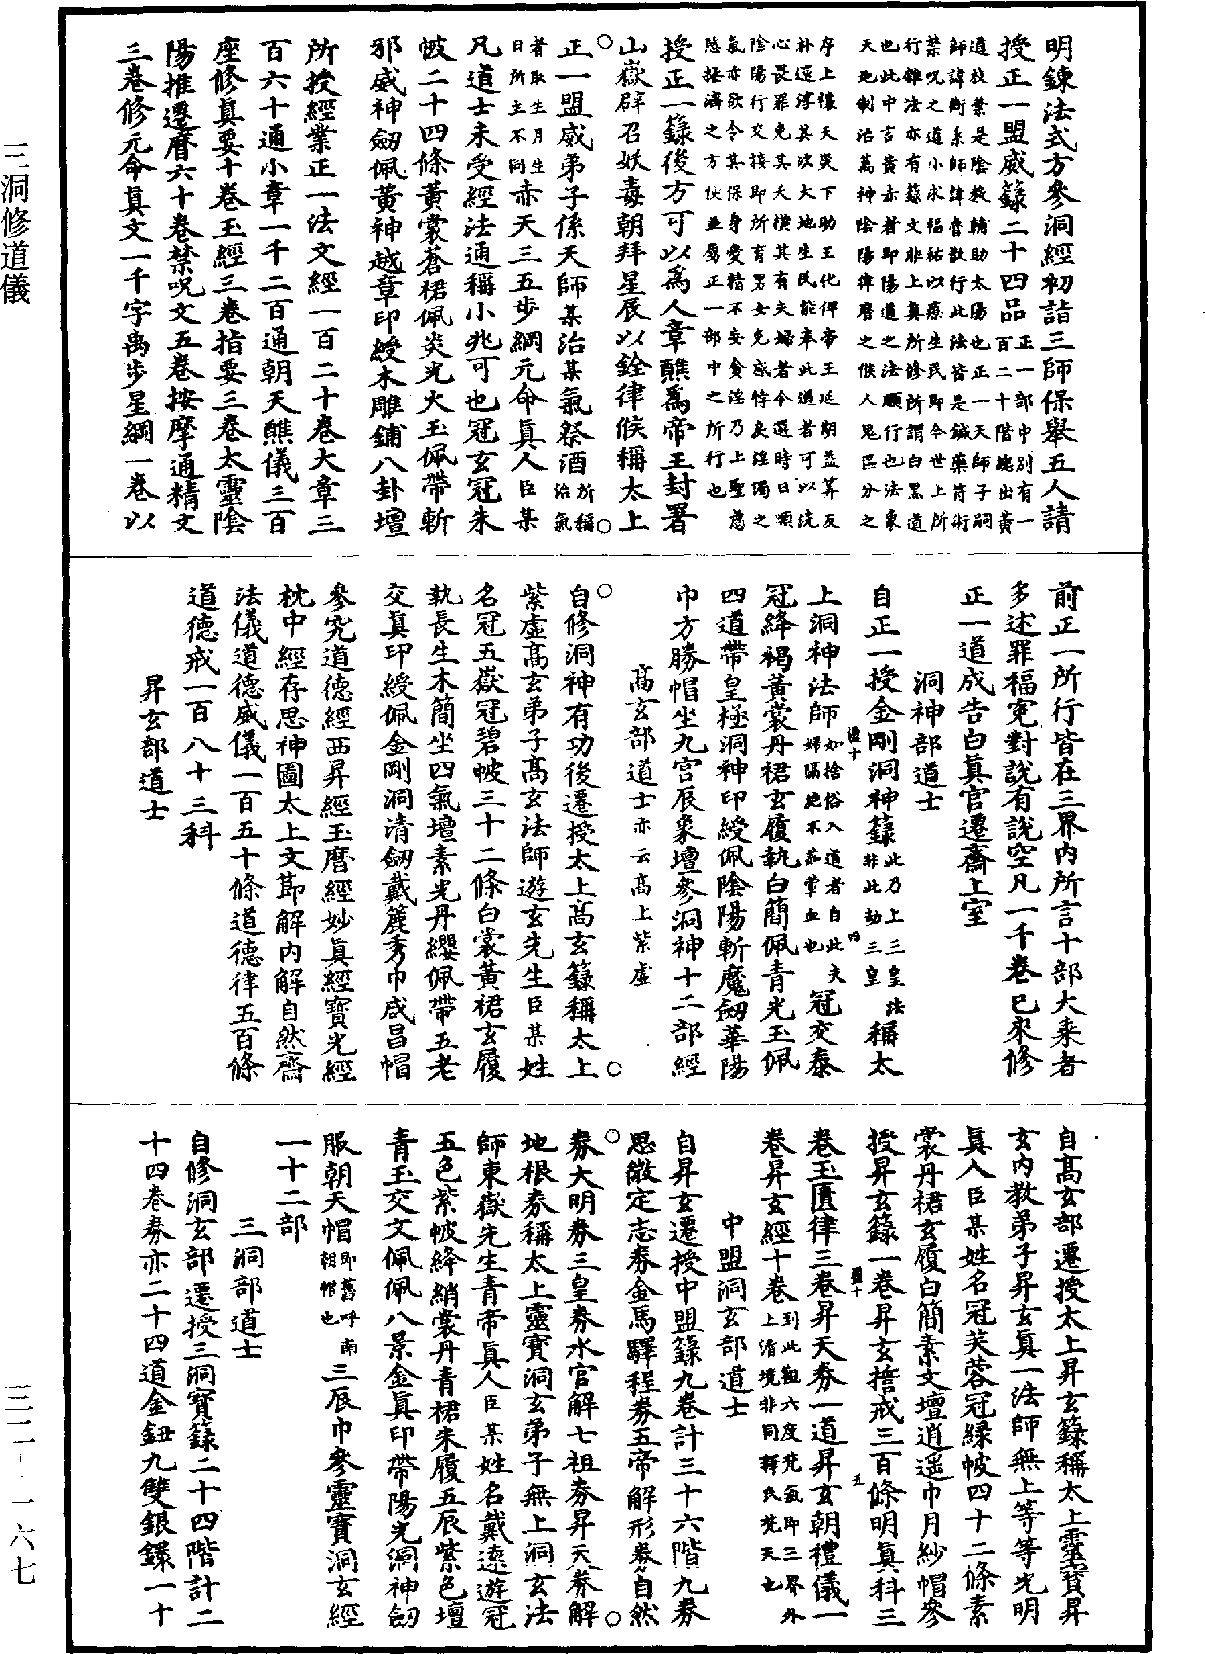 明鍊法式方參洞經初詣三師保舉五人請
授正一盟威籙二十四品正一部中別有一百二十階總出黃
道枝葉是陰教輔助太陽也正一天師子嗣
師諱衡系師諱魯散行此法皆是鍼藥符術
禁呪之道小永福祐以療生民即今世上所
行雜法亦有籙文非上真所修所謂白黑道
也此中言黃赤者即陽道之法順行也法象
天地制治萬神陰陽律曆之候人鬼區分之
序上禳天災下助王化俾帝王延期益筭反
朴還淳其次大地生民能奉此道者可以統
心畏罪免其夭橫其有夫婦者令選時日順
陰陽行交接即所育男女免惑悖矣淫濁之
氣亦欲令其保身愛精不妄貪淫乃上聖慈
隱拯濟之方便並屬正一部中之所行也
授正一籙後方可以為人章醮為帝王封署
山嶽辟召妖毒朝拜星辰以銓律候稱太上
正一盟威弟子係天師某治某氣祭酒所稱治氣
者取生月生日所主不同赤天三五步綱元命真人臣某
凡道士未受經法通稱小兆可也冠玄冠朱
帔二十四條黃裳蒼裙佩炎光大玉佩帶斬
邪威神劒佩黃神越章印綬木雕鋪八卦壇
所授經業正一法文經一百二十卷大章三
百六十通小章一千二百通朝天醮儀三百
座修真要十卷玉經三卷指要三卷太靈陰
陽推遷曆六十卷禁呪文五卷按摩通精文
三卷修元命真文一千字禹步星綱一卷以
前正一所行皆在三界內所言十部大乘者
多述罪福寃對說有說空凡一千卷已來修
正一道成告白真官遷齋上室
洞神部道士
自正一授金剛洞神籙此乃上三皇法非此劫三皇稱太
上洞神法師如捨俗入道者自此夫婦隔地不茹葷血也冠交泰
冠絳褐黃裳丹裙玄履執白簡佩青光玉佩
四道帶皇極洞神印綬佩陰陽斬魔劒華陽
巾方勝帽坐九宮辰象壇參洞神十二部經
高玄部道士亦云高上紫虛
自修洞神有功後遷授太上高玄籙稱太上
紫虛高玄弟子高玄法師遊玄先生臣某姓
名冠五嶽冠碧帔三十二條白裳黃裙玄履
執長生木簡坐四氣壇素光丹纓佩帶五老
交真印綬佩金剛洞清劒戴簏秀巾咸昌帽
參究道德經西昇經玉曆經妙真經寶光經
枕中經存思神圖太上文節解內解自然齋
法儀道德威儀一百五十條道德律五百條
道德戒一百八十三科
昇玄部道士
自高玄部遷授太上昇玄籙稱太上靈寶昇
玄內教弟子昇玄真一法師無上等等光明
真人臣某姓名冠芙蓉冠緑帔四十二條素
裳丹裙玄履白簡素文壇逍遥巾月紗帽參
授昇玄籙一卷昇玄擔戒三百條明真科三
卷玉匱律三卷昇天券一道昇玄朝禮儀一
卷昇玄經十卷到此觀六度梵氣即三界外上清境非同釋氏梵天也
中盟洞玄部道士
自昇玄遷授中盟籙九卷計三十六階九券
思微定志券金馬驛程券五帝解形券自然
券大明券三皇券水官解七祖券昇天券解
地根券稱太上靈寶洞玄弟子無上洞玄法
師東嶽先生青帝真人臣某姓名戴遠遊冠
五色紫帔絳綃裳丹青裙朱履五辰紫色壇
青玉交文佩佩八景金真印帶陽光洞神劒
服朝天帽即舊呼南相帽也三辰巾參靈寶洞玄經
一十二部
三洞部道士
自修洞玄部遷授三洞寶籙二十四階計二
十四卷券亦二十四道金鈕九雙銀鐶一十
三洞修道儀
三二-一六七